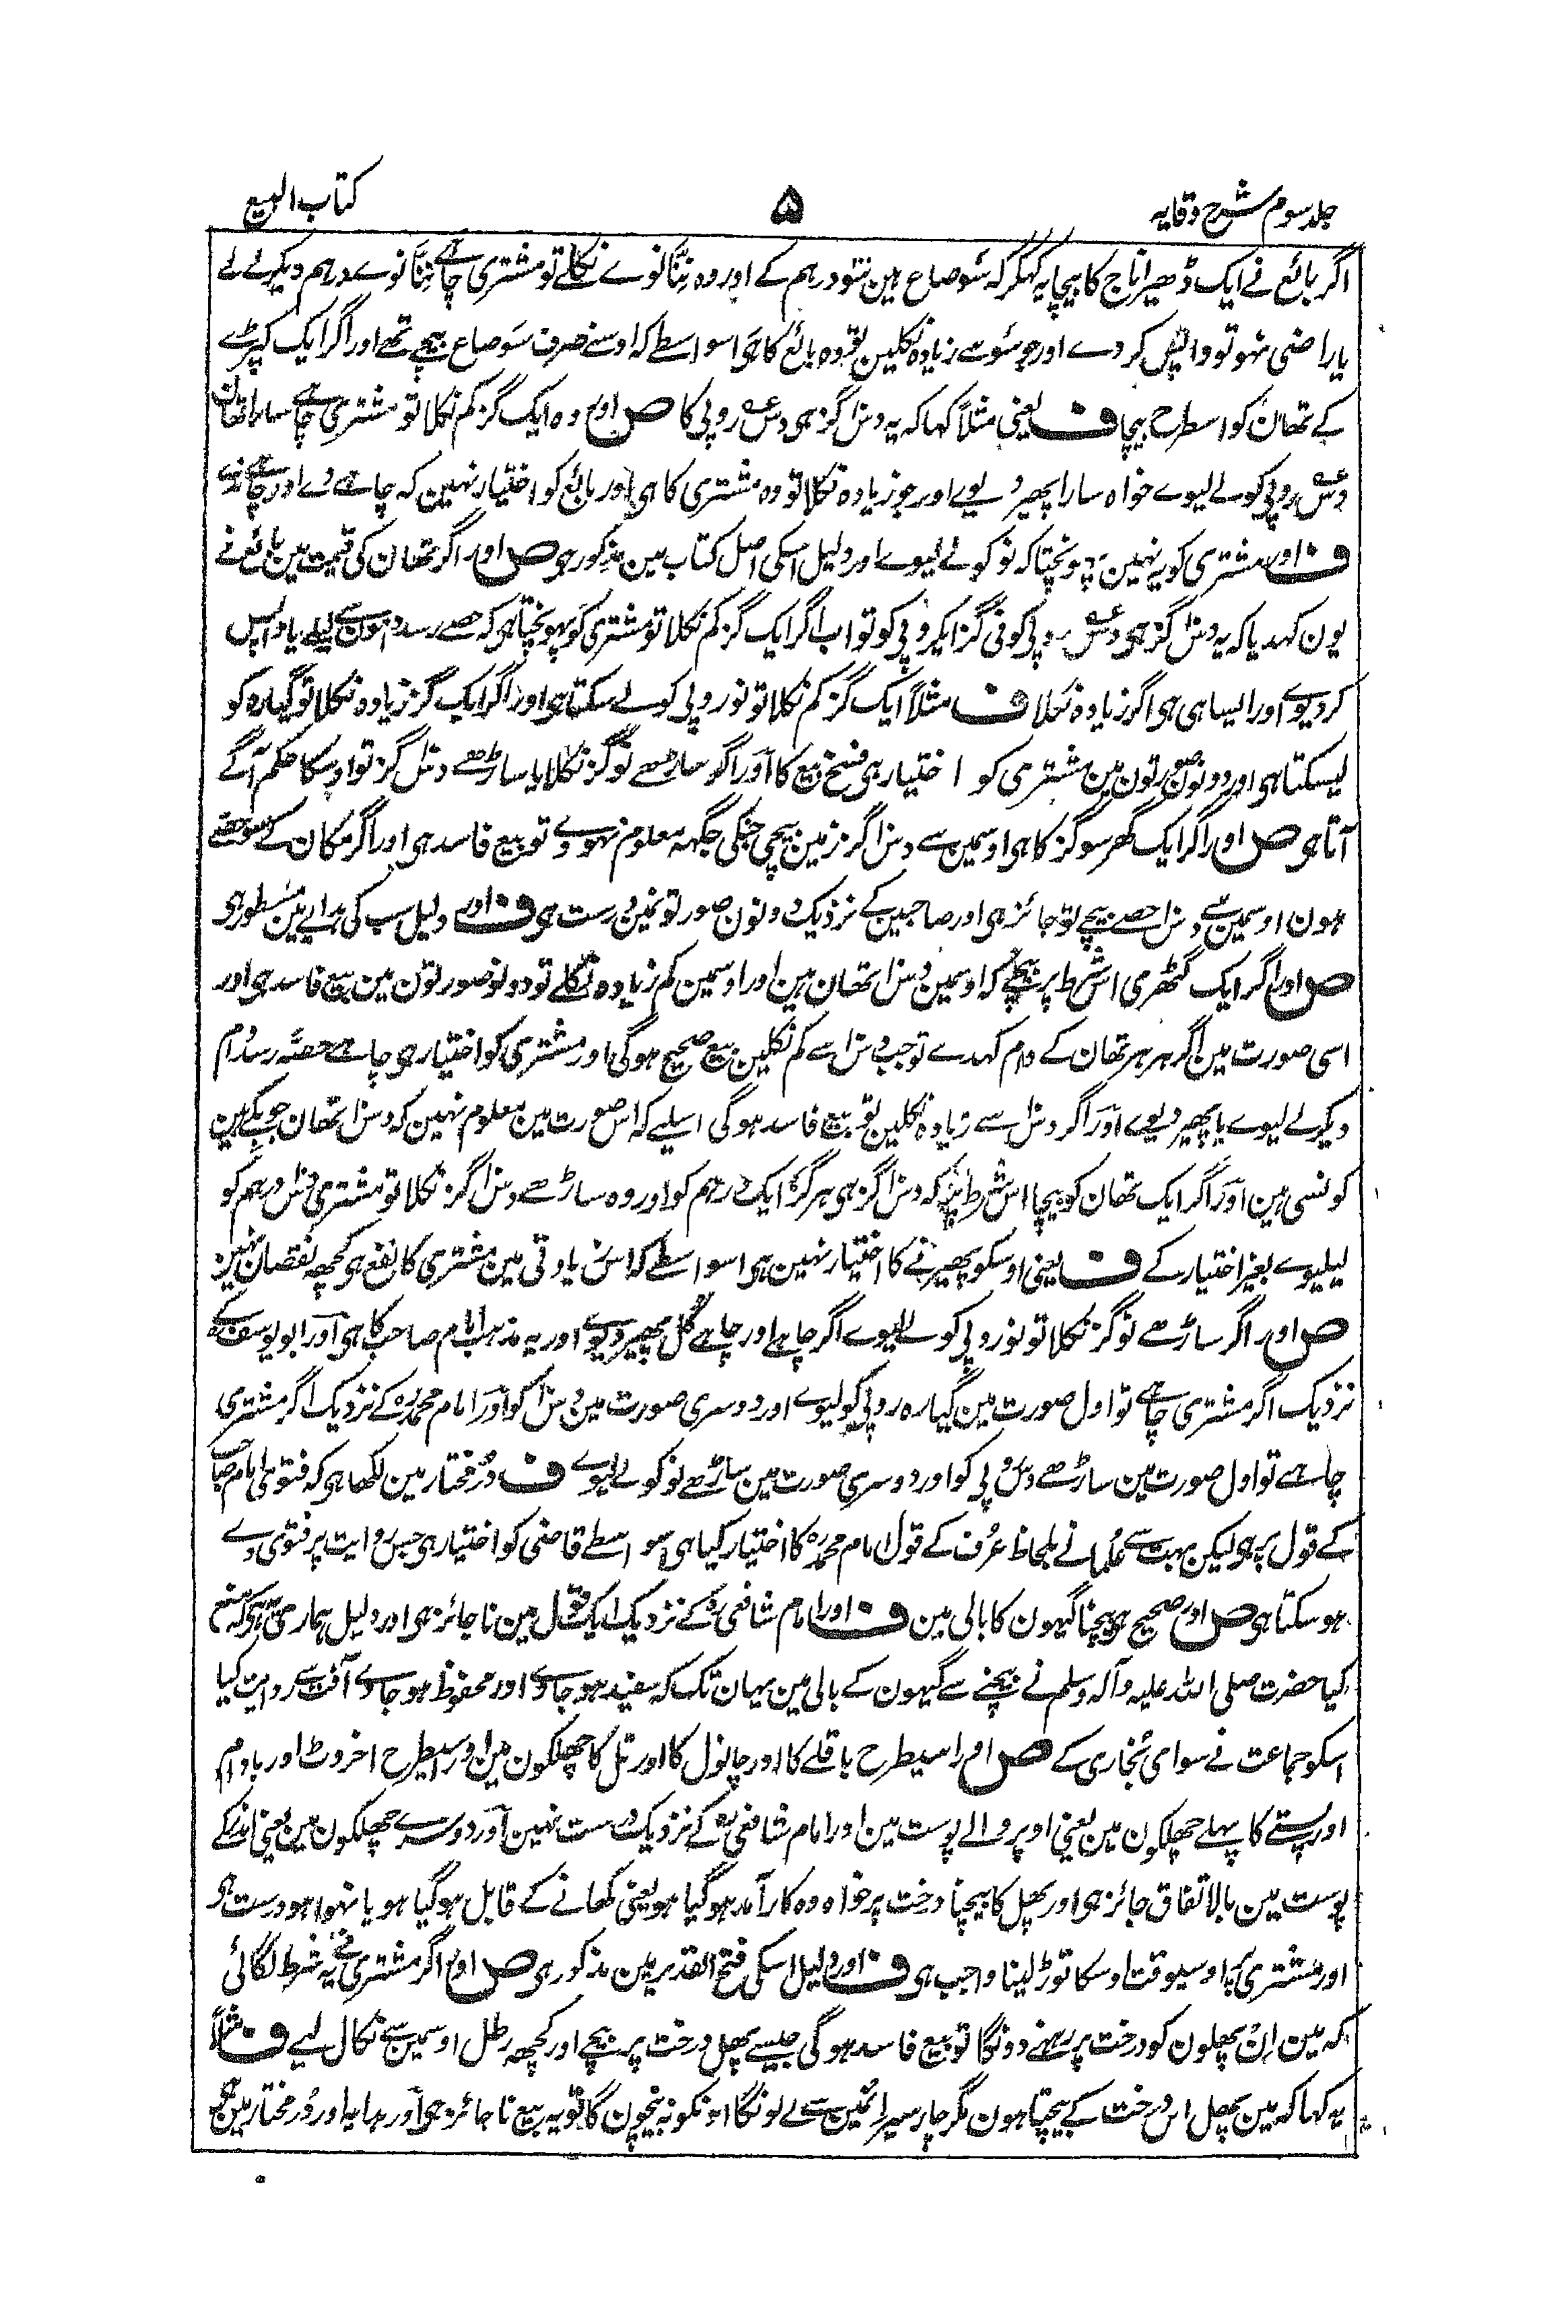 جلد سوم شرح وقایہ
۵
کتاب البیع
اگر بائع نے ایک ڈھیر اناج کا بیچا یہ کہکر کہ سَو صاع ہین سَو درہم کے اور وہ ننّانوے نکلے تو مشتری چاہے ننّانوے درہم دیکر لے لے
یا راضی نہو تو واپس کر دے اور جو سَو سے زیادہ نکلین تو وہ بائع کا ہی اسواسطے کہ اوسنے صرف سَو صاع بیچے تھے اور اگر ایک کپڑے
کے تھان کو اسطرح بیچا ف یعنی مثلاً کہا کہ یہ دسؔ گز ہی دسؔ روپی کا ص اور وہ ایک گز کم نکلا تو مشتری چاہے سارا تھان
دسؔ روپی کو لے لیوے خواہ سارا پھیر دیوے اور جو زیادہ نکلا تو وہ مشتری کا ہی اور بائع کو اختیار نہین کہ چاہے دے اور چاہے ندے
ف اور مشتری کو یہ نہین پہونچتا کہ نو کو لے لیوے اور دلیل اسکی اصل کتاب مین مذکور ہی ص اور اگر تھان کی قیمت مین بائع نے
یون کہدیا کہ یہ دسؔ گز ہی دسؔ روپی کو فی گز ایکروپی کو تو اب اگر ایک گز کم نکلا تو مشتری کو پہونچتا ہی کہ حصے رسد دامون سے لیلے یا واپس
کر دیوے اور ایسا ہی ہی اگر زیادہ نکلا ف مثلاً ایک گز کم نکلا تو نو روپی کو لے سکتا ہی اور اگر ایک گز زیادہ نکلا تو گیارہ کو
لیسکتا ہی اور دونون صورتون مین مشتری کو اختیار ہی فسخ بیع کا اور اگر ساڑھے نو گز نکلا یا ساڑھے دسؔ گز تو اوسکا حکم آگے
آتا ہی ص اور اگر ایک گھر سو گز کا ہی اوسمین سے دسؔ گز زمین بیچی جنکی جگہہ معلوم نہووے تو بیع فاسد ہی اور اگر مکان کے سو حصے
ہون اوسمین سے دسؔ حصے بیچے تو جائز ہی اور صاحبین کے نزدیک دونون صورتونمین درست ہی ف اور دلیل سب کی ہدایے مین مسطور ہی
ص اور اگر ایک گٹھری اس شرط پر بیچے کہ اوسمین دسؔ تھان ہین اور اوسمین کم زیادہ نکلے تو دونو صورتون مین بیع فاسد ہی اور
اسی صورت مین اگر ہر ہر تھان کے دام کہدے تو جب دسؔ سے کم نکلین بیع صحیح ہوگی اور مشتری کو اختیار ہی چاہے حصّہ رسد دام
دیکر لے لیوے یا پھیر دیوے اور اگر دسؔ سے زیادہ نکلین تو بیع فاسد ہوگی اسلیے کہ اس صورت مین معلوم نہین کہ دسؔ تھان جو بکے ہین
کونسی ہین اور اگر ایک تھان کو بیچا اس شرط پر کہ دسؔ گز ہی ہر گز ایک درہم کو اور وہ ساڑھے دسؔ گز نکلا تو مشتری دسؔ درہم کو
لیلیوے بغیر اختیار کے ف یعنی اوسکو پھیرنے کا اختیار نہین ہی اسواسطے کہ اس زیادتی مین مشتری کا نفع ہی کچھہ نقصان نہین
ص اور اگر ساڑھے نو گز نکلا تو نو روپی کو لے لیوے اگر چاہے اور چاہے کُل پھیر دیوے اور یہ مذہب امام صاحب کا ہی اور ابو یوسف کے
نزدیک اگر مشتری چاہے تو اول صورت مین گیارہ روپی کو لیوے اور دوسری صورت مین دسؔ کو اور امام محمدؒ کے نزدیک اگر مشتری
چاہے تو اول صورت مین ساڑھے دس روپی کو اور دوسری صورت مین ساڑھے نو کو لے لیوے ف درّ مختار مین لکھا ہی کہ فتویٰ امام صاحب
کے قول پر ہی لیکن بہت سے علما نے بلحاظ عُرف کے قول امام محمدؒ کا اختیار کیا ہی سو اسطے قاضی کو اختیار ہی جس روایت پر فتویٰ دے
ہو سکتا ہی ص اور صحیح ہی بیچنا گیہون کا بالی مین ف اور امام شافعیؒ کے نزدیک ایک قول مین ناجائز ہی اور دلیل ہماری یہ ہی کہ منع
کیا حضرت صلی اللہ علیہ وآلہ وسلم نے بیچنے سے گیہون کے بالی مین یہان تک کہ سفید ہو جاوے اور محفوظ ہو جاوے آفت سے روایت کیا
اسکو جماعت نے سوای بُخاری کے ص اور اسیطرح باقلے کا اور چانول کا اور تل کا چھلکون مین اور اسیطرح اخروٹ اور بادام
اور پستے کا پہلے چھلکون مین یعنی اوپر والے پوست مین اور امام شافعیؒ کے نزدیک درست نہین اور دوسرے چھلکون مین یعنی اندر کے
پوست مین بالاتفاق جائز ہی اور پھل کا بیچنا درخت پر خواہ وہ کار آمد ہو گیا ہو یعنی کھانے کے قابل ہو گیا ہو یا نہوا ہو درست ہی
اور مشتری پر اوسیوقت اوسکا توڑ لینا واجب ہی ف اور دلیل اسکی فتح القدیر مین مذکور ہی ص اور اگر مشتری نے یہ شرط لگائی
کہ مین اِن پھلون کو درخت پر رہنے دونگا تو بیع فاسد ہوگی جیسے پھل درخت پر بیچے اور کچھہ رطل اوسمین سے نکال لیے ف مثلاً
یہ کہا کہ مین پھل اس درخت کے بیچتا ہون مگر چار سیر اِنمین سے لے لونگا اونکو نہ بیچون گا تو یہ بیع ناجائز ہی اور ہدایہ اور دُر مختار مین ہی